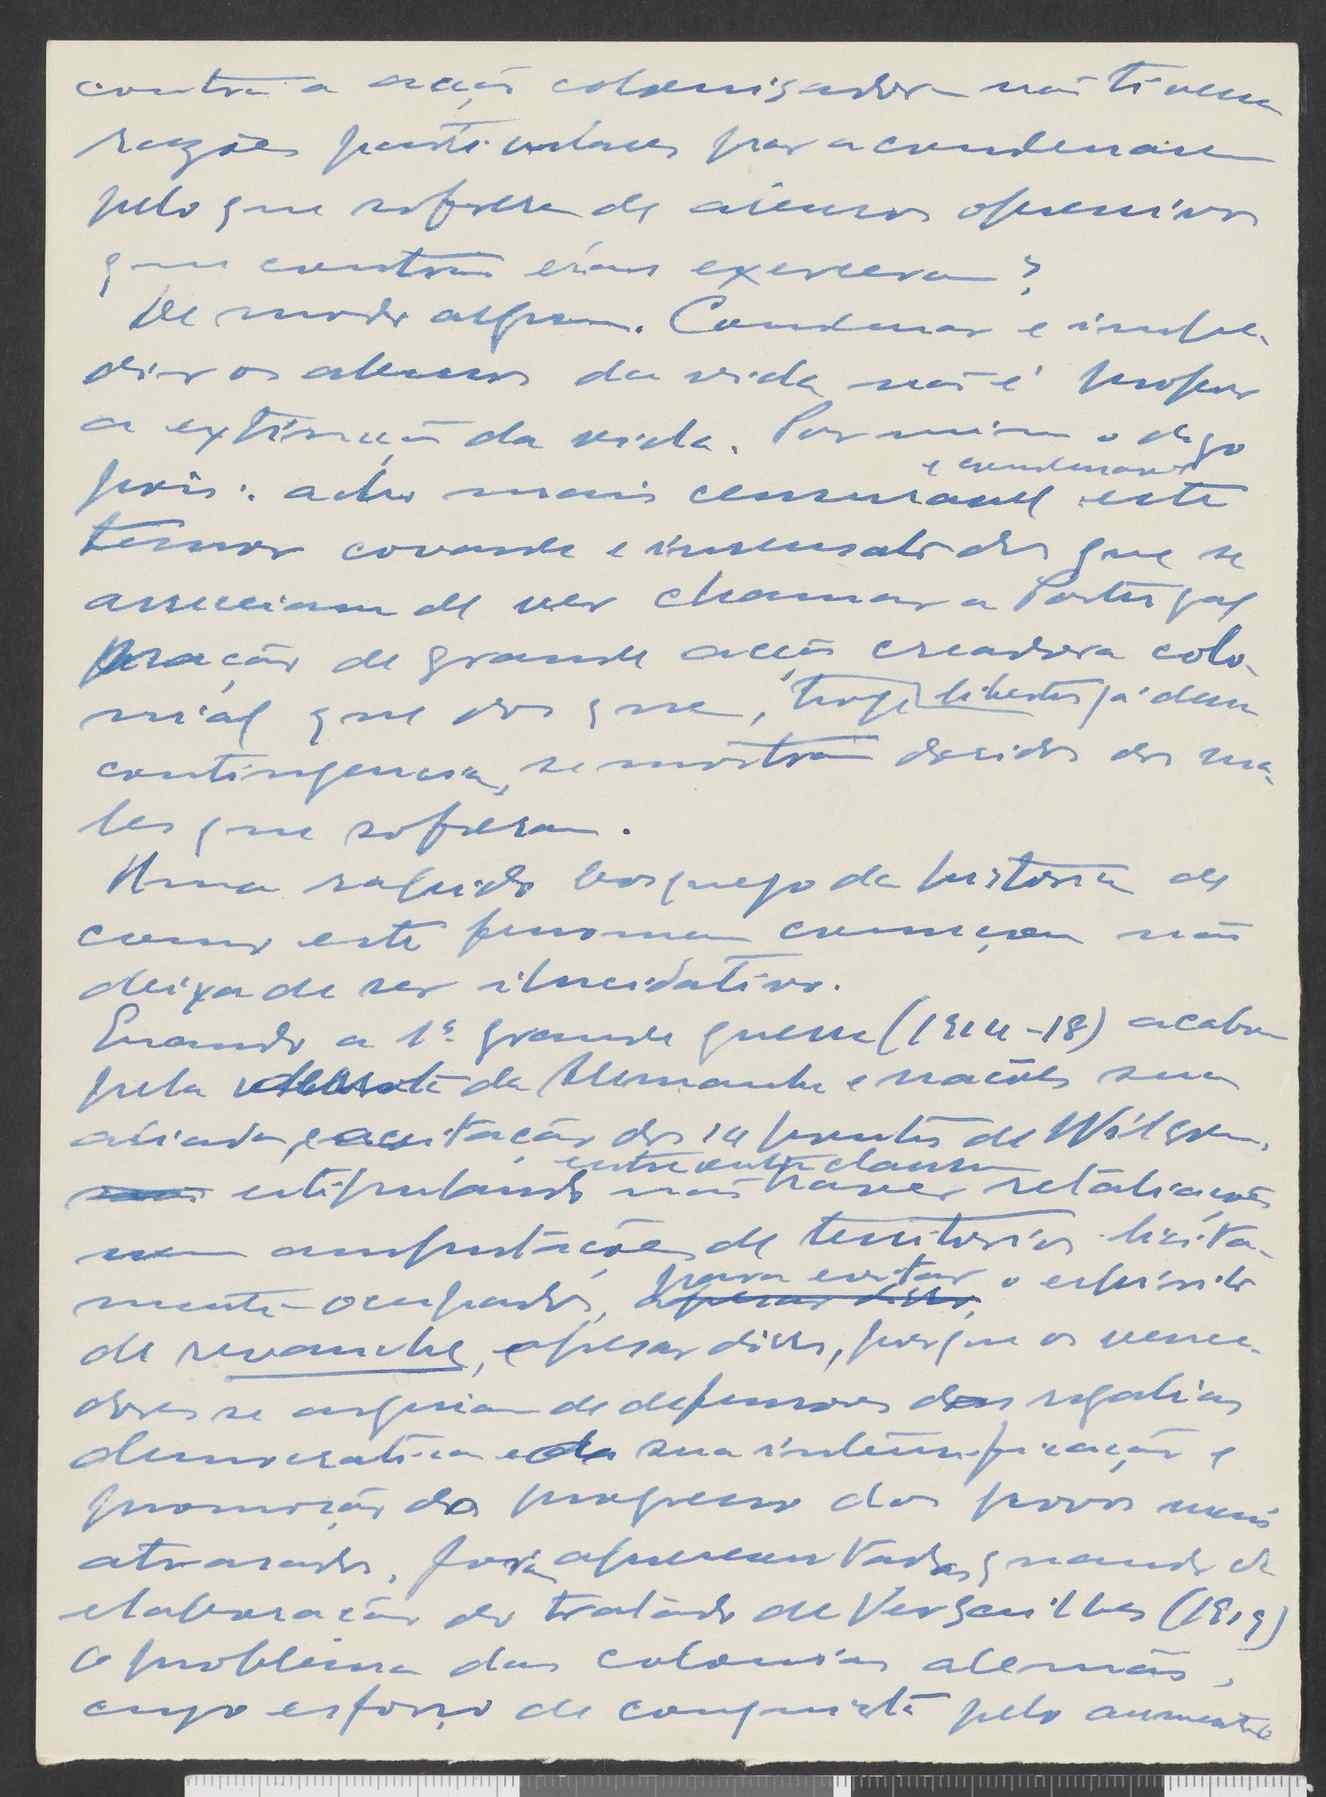 contra a acção colonisadora não tivessem
razões particulares para a condenarem
pelo que sofreram de abusos opressivos
que contra eles exerceram?
De modo algum. Condenar e impe-
dir os abusos da vida não é propor
a extinção da vida. Por mim o digo
pois: acho mais censuravel e condenavel este
temor covarde e insensato dos que se
arreceiam de ver chamar a Portugal
nação de grande acção creadora colo-
nial que dos que, hoje libertos já dessa
contingencia, se mostram doridos dos ma-
les que sofreram.
Uma rapido bosquejo da historia de
como este fenomeno começou não
deixa de ser ilucidativo.
Quando a 1ª grande guerra (1914-18) acabou
pela derrota da Alemanha e nações suas
aliadas, e aceitação dos 14 pontos de Wilson,
estipulando entre outras clausulas não haver retaliações
nem amputações de territorios licita-
mente ocupados, para evitar o espirito
de revanche, apesar disso, porque os vence-
dores se arguiam de defensores das regalias
democraticas e da sua intensificação e
promoção do progresso dos povos mais
atrasados, foi apresentado, quando da
elaboração do tratado de Versailhes (1919)
o problema das colonias alemãs,
cujo esforço de conquista pelo aumento